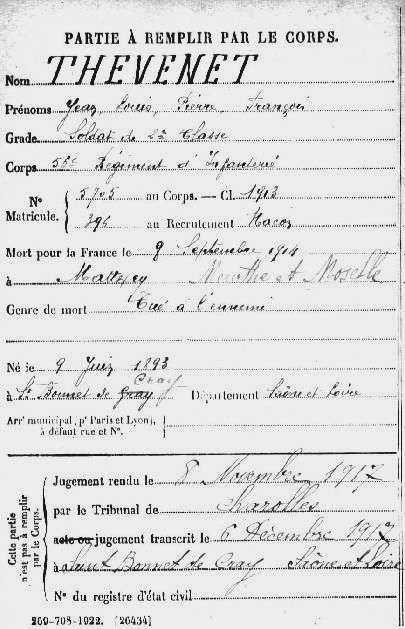 PARTIE À REMPLIR PAR LE CORPS.
Nom THEVENET
Prénoms Jean Louis, Pierre, François
Grade Soldat de 2me Classe
Corps 56e Régiment d'Infanterie
N° Matricule. 5705 au Corps. — Cl. 1913
395 au Recrutement Macon
Mort pour la France le 9 Septembre 1914
à Mattexey Meurthe et Moselle
Genre de mort Tué à l'ennemi
Né le 9 Juin 1893
Cray
à St Bonnet de Gray Département Saône et Loire
Arrt municipal, pr Paris et Lyon,
à défaut rue et N°.
Cette partie n'est pas à remplir par le Corps.
Jugement rendu le 8 Novembre 1917
par le Tribunal de Charolles
acte ou jugement transcrit le 6 Décembre 1917
à Saint Bonnet de Cray Saône et Loire
N° du registre d'état civil
269-708-1922. [26434]